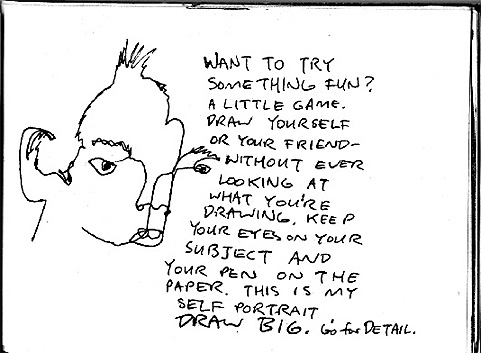 WANT TO TRY
SOMETHING FUN?
A LITTLE GAME.
DRAW YOURSELF
OR YOUR FRIEND-
WITHOUT EVER
LOOKING AT
WHAT YOU'RE
DRAWING. KEEP
YOUR EYES ON YOUR
SUBJECT AND
YOUR PEN ON THE
PAPER. THIS IS MY
SELF PORTRAIT
DRAW BIG. Go for DETAIL.